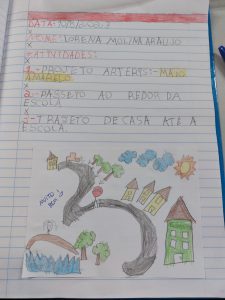 DATA:
X
NOME: LORENA MOLINA ARAUJO
X
ATIVIDADES:
X
1-PROJETO ARTERIS:-MAIO
AMARELO
X
2-PASSEIO AO REDOR DA
ESCOLA
X
3-TRAJETO DE CASA ATÉ A
ESCOLA.
MUITO
BEM